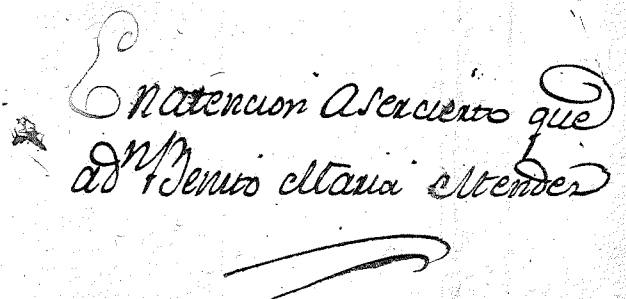 En atencion a ser cierto que
a dn Benito Maria Mendez